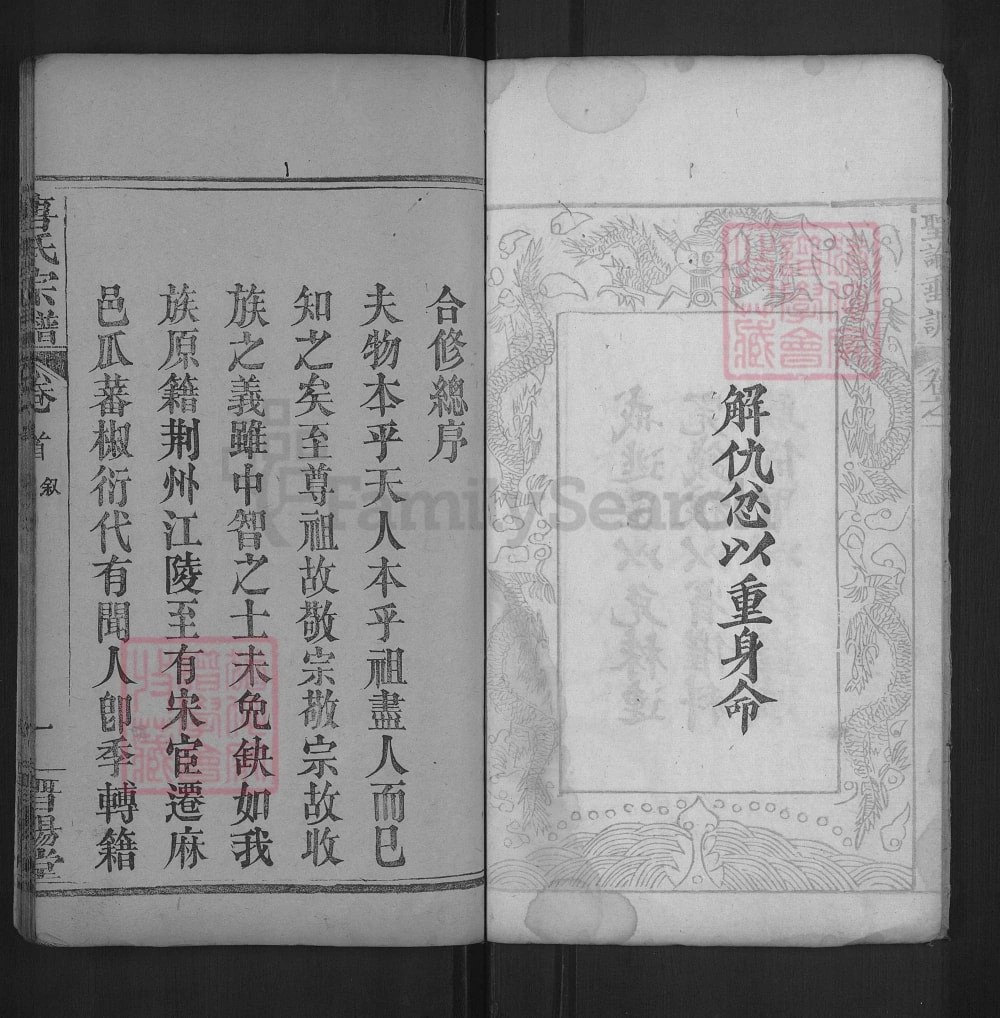 聖諭垂訓
卷之
解仇忿以重身命
合修總序
夫物本乎天人本乎祖盡人而巳
知之矣至尊祖故敬宗敬宗故收
族之義雖中智之士未免缺如我
族原籍荆州江陵至有宋宦遷麻
邑瓜蕃椒衍代有聞人卽季轉籍
唐氏宗譜
卷首
叙
一
晋陽堂
FamilySearch